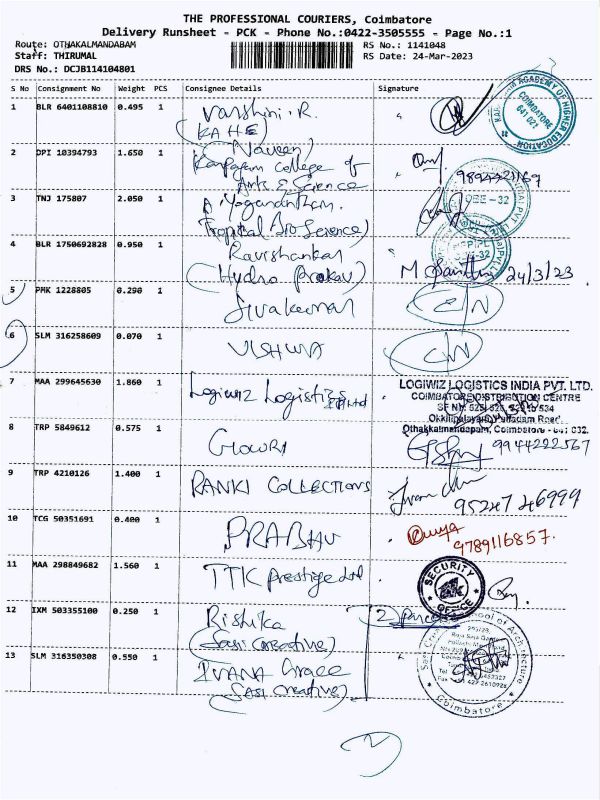 THE PROFESSIONAL COURIERS, Coimbatore
Delivery Runsheet - PCK - Phone No.:0422-3505555 - Page No.:1
Route: OTHAKALMANDABAM RS No.: 1141048
Staff: THIRUMAL RS Date: 24-Mar-2023
DRS No.: DCJB114104801
S No Consignment No Weight PCS Consignee Details Signature
1 BLR 6401108810 0.495 1 Varshini.R.
(KAHE)
COIMBATORE
641 021
ACADEMY OF HIGHER EDUCATION
2 DPI 10394793 1.650 1 (Naveen)
Karpagam College of
Arts & Science
9894421169
3 TNJ 175807 2.050 1 A. Yoganantham.
(Tropical Agro Science)
4 BLR 1750692828 0.950 1 Ravishankar
(Hydro Prokav) M 24/3/23
5 PMK 1228805 0.290 1 Sivakumar C/N
6 SLM 316258609 0.070 1 VISHWA C/N
7 MAA 299645630 1.860 1 Logiwiz Logistics
LOGIWIZ LOGISTICS INDIA PVT. LTD.
COIMBATORE DISTRIBUTION CENTRE
Othakkalmandapam, Coimbatore - 641 032.
8 TRP 5849612 0.575 1 GOWRI 9944222567
9 TRP 4210126 1.400 1 RANKI COLLECTIONS 95247 46999
10 TCG 50351691 0.400 1 PRABHU
9789116857.
11 MAA 298849682 1.560 1 TTK Prestige Ltd
SECURITY
OFFICE
12 IXM 503355100 0.250 1 Rishika 2) Parcel
(Sasi Creative)
13 SLM 316350308 0.550 1 IVANA Grace
(Sasi Creative)
Coimbatore